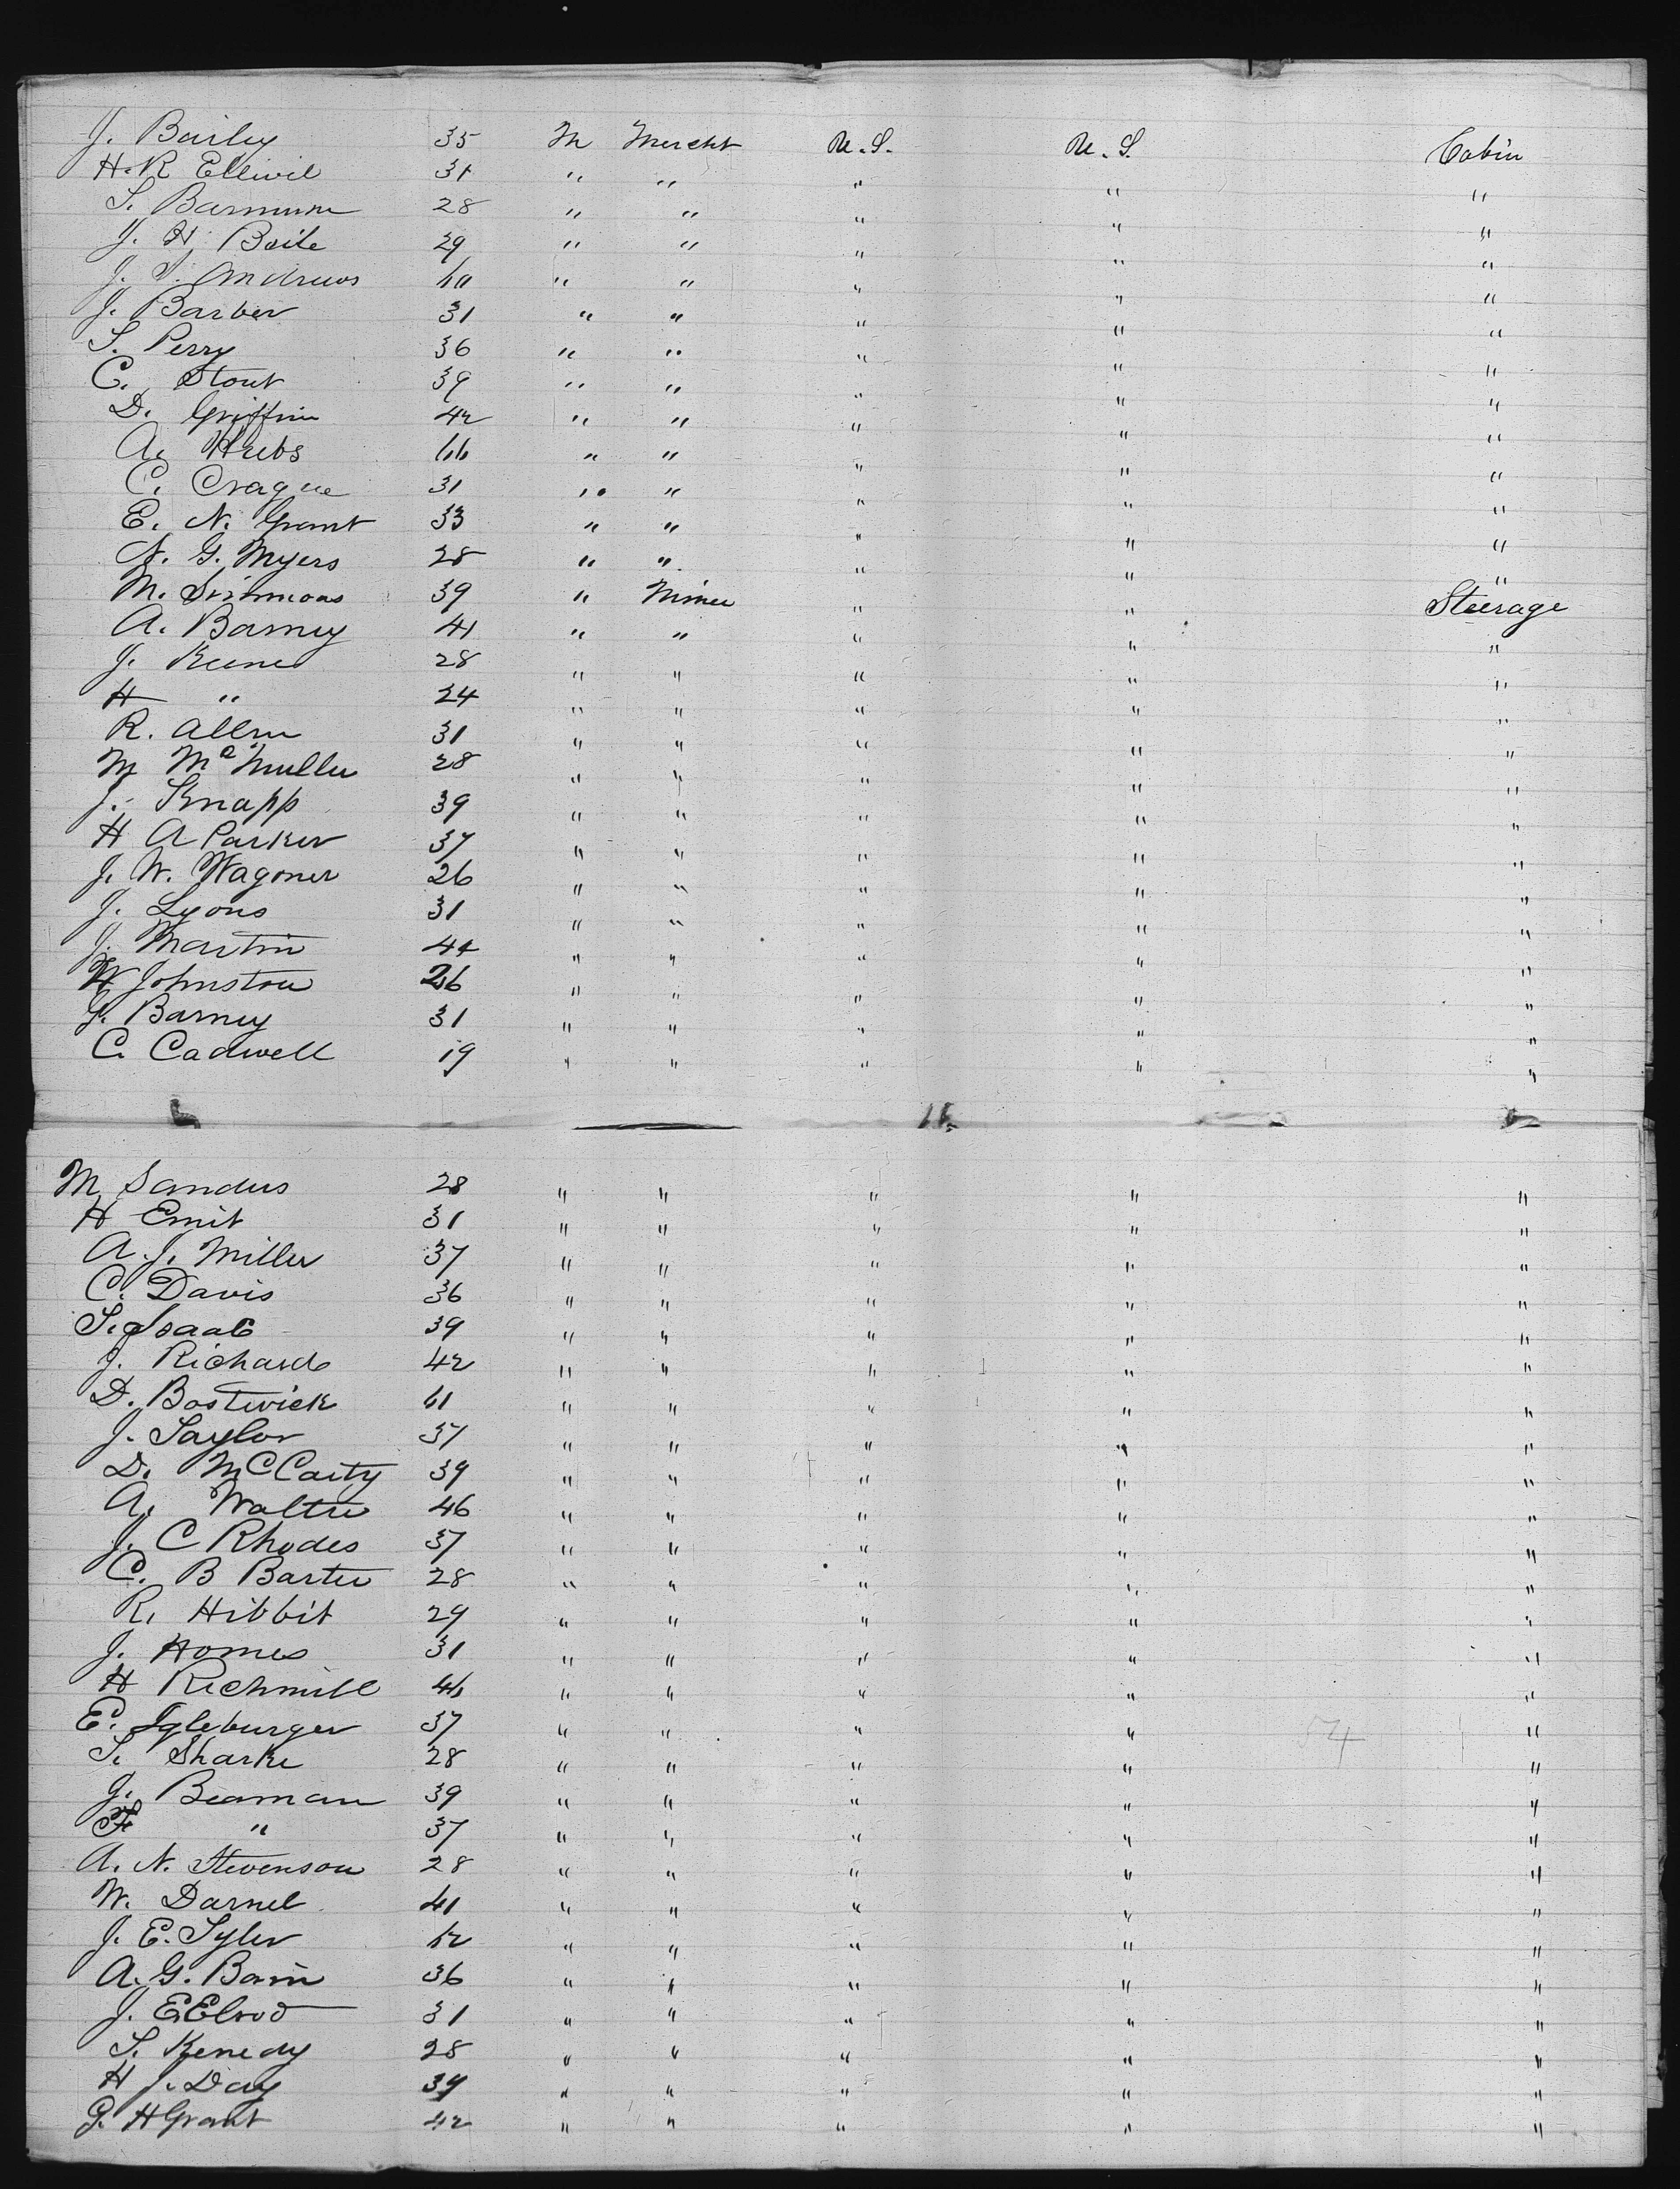 J. Bailey 35 M Mercht U.S. U.S. Cabin
H. R Elliwil 31 " " " " "
S. Barnum 28 " " " " "
J. H. Boile 29 " " " " "
J. S. Andrews 40 " " " " "
J. Barber 31 " " " " "
S. Perry 36 " " " " "
C. Stout 39 " " " " "
D. Griffin 42 " " " " "
A. Krebs 46 " " " " "
C. Crague 31 " " " " "
E. N. Grant 33 " " " " "
N. G. Myers 28 " " " " "
M. Simmons 39 " Miner " " Steerage
A. Barney 41 " " " " "
J. Keene 28 " " " " "
H " 24 " " " " "
R. Allen 31 " " " " "
M McMullen 28 " " " " "
J. Knapp 39 " " " " "
H A Parker 37 " " " " "
J. W. Wagoner 26 " " " " "
J. Lyons 31 " " " " "
J. Martin 44 " " " " "
W Johnston 26 " " " " "
G. Barney 31 " " " " "
C. Cadwell 19 " " " " "
M Sanders 28 " " " " "
H Emit 31 " " " " "
A. J. Miller 37 " " " " "
C. Davis 36 " " " " "
S. Isaac 39 " " " " "
J. Richards 42 " " " " "
D. Bostwick 41 " " " " "
J. Taylor 37 " " " " "
D. McCarty 39 " " " " "
A. Walter 46 " " " " "
J. C Rhodes 37 " " " " "
C. B Barter 28 " " " " "
R. Hibbit 29 " " " " "
J. Homes 31 " " " " "
H Richmill 46 " " " " "
E. Igleburger 37 " " " " "
S. Sharke 28 " " " " "
J. Beaman 39 " " " " "
F. " 37 " " " " "
A. N. Stevenson 28 " " " " "
W. Darnel 41 " " " " "
J. E. Tyler 42 " " " " "
A. G. Bain 36 " " " " "
J. E Elrod 31 " " " " "
S. Kenedy 28 " " " " "
H J. Day 39 " " " " "
G. H Grant 42 " " " " "
54